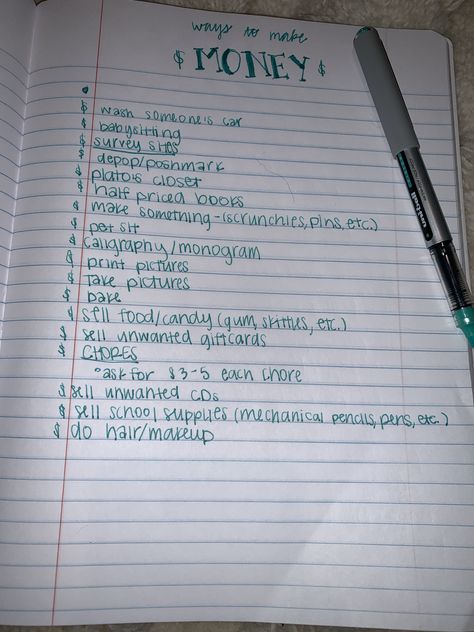 ways to make
$ MONEY $
$ wash someone's car
$ babysitting
$ survey sites
$ depop/poshmark
$ platos closet
$ half priced books
$ make something - (scrunchies, pins, etc.)
$ pet sit
$ caligraphy/monogram
$ print pictures
$ take pictures
$ bake
$ sell food/candy (gum, skittles, etc.)
$ sell unwanted giftcards
$ CHORES
° ask for $3-5 each chore
$ sell unwanted CDs
$ sell school supplies (mechanical pencils, pens, etc.)
$ do hair/makeup
uni-ball